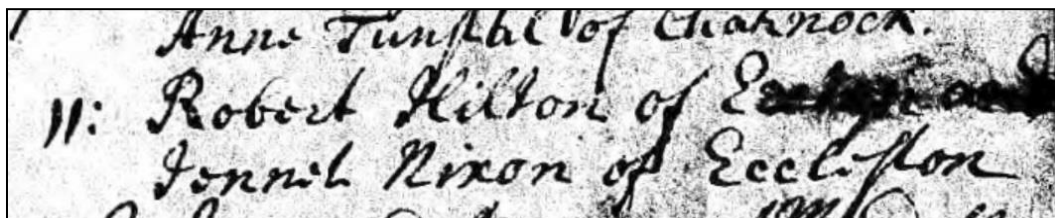 Anne Tunstal of Charnock.
11: Robert Hilton of
Jennet Nixon of Eccleston